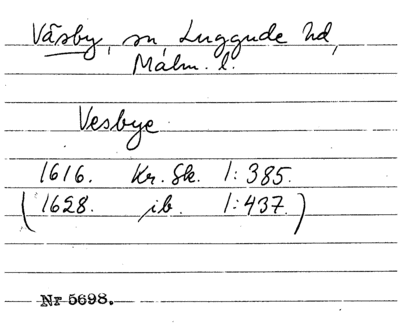 Väsby, sn Luggude hd,
Malm. l.
Vesbye
1616. Kr. Sk. 1:385.
(1628. ib. 1:437.)
Nr 5698.